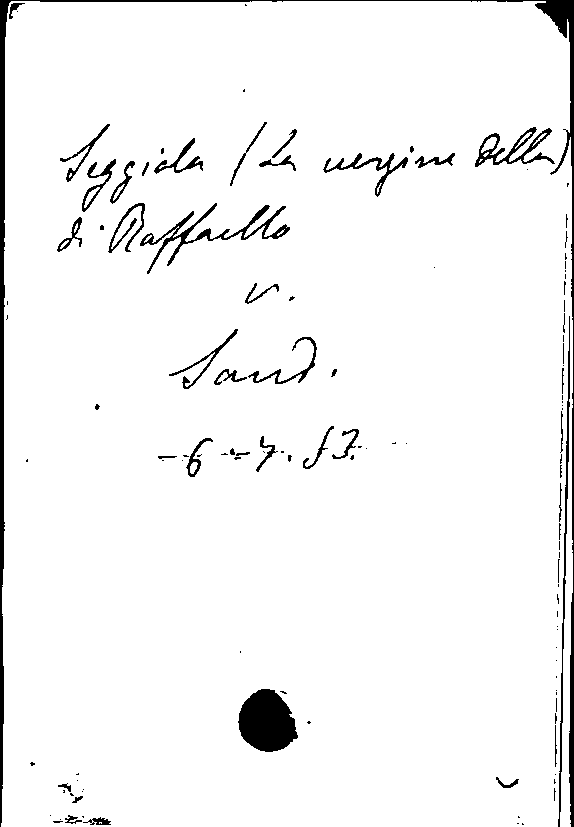 Seggiola (La vergine della)
di Raffaello
v.
Sand.
-6-7.53.